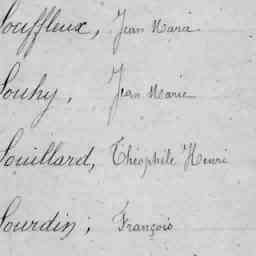 Souffleux, Jean Marie
Souhy, Jean Marie
Souillard, Théophile Henri
Sourdin, François